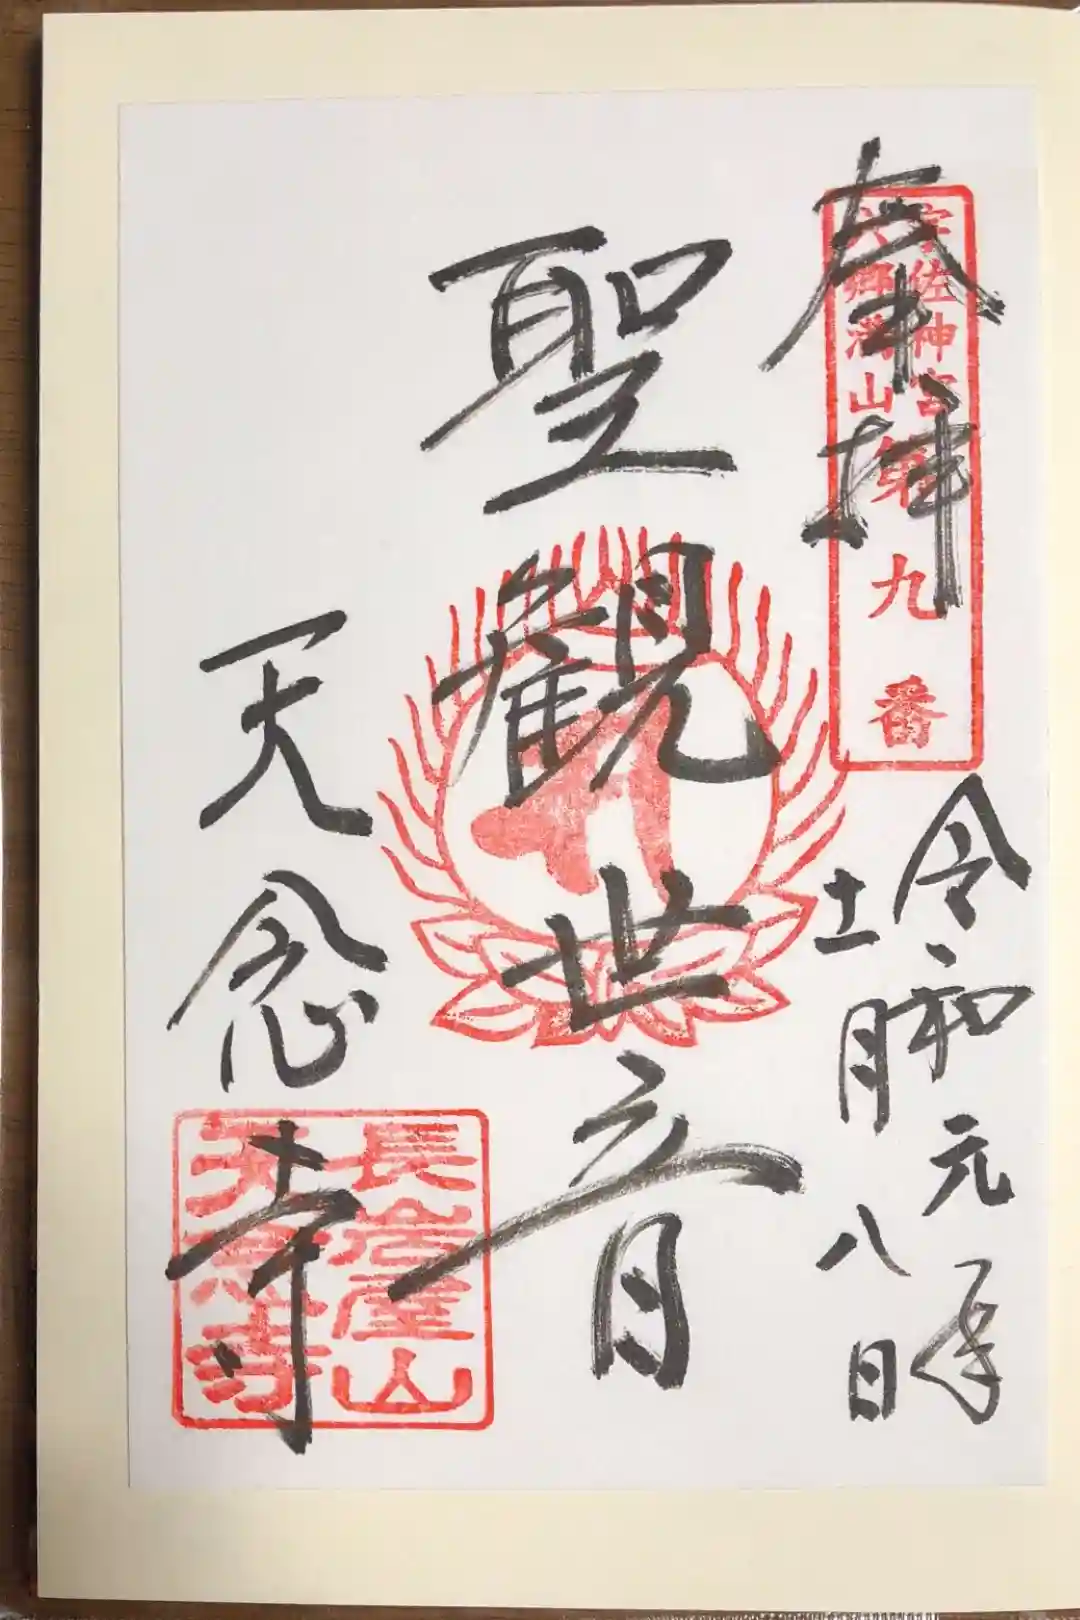 奉拝
宇佐神宮
六郷満山
第九番
令和元年
十一月八日
聖観世音
天念寺
長岩屋山
天念寺